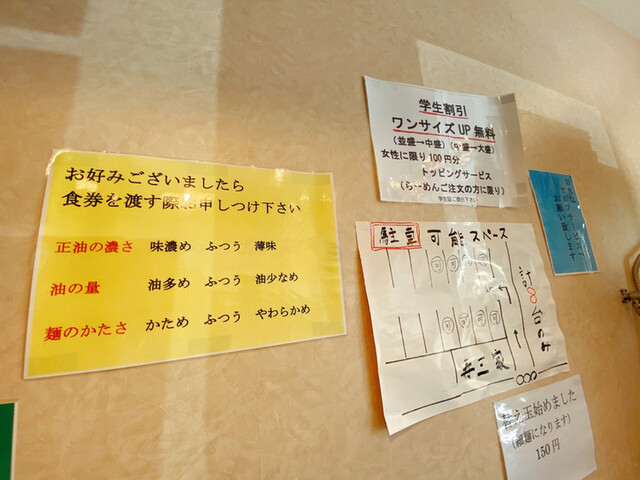 お好みございましたら
食券を渡す際お申しつけ下さい
正油の濃さ 味濃め ふつう 薄味
油の量 油多め ふつう 油少なめ
麺のかたさ かため ふつう やわらかめ
学生割引
ワンサイズUP無料
(並盛→中盛)(中盛→大盛)
女性に限り100円分
トッピングサービス
(らーめんご注文の方に限り)
学生証ご提示下さい
駐車可能スペース
可 可 可
可 可 可 可
計8台のみ
壱三家
替え玉始めました
(細麺になります)
150円
お願い致します